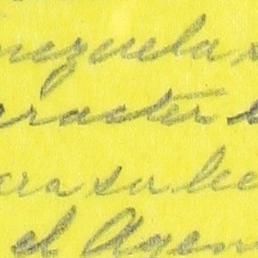 nezuela s
aracter
ara su le
el Agen